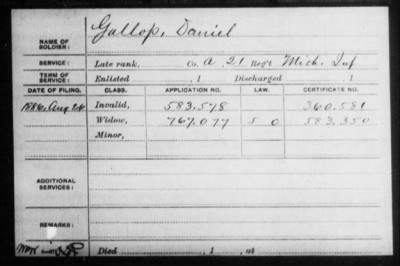 NAME OF SOLDIER: Gallop, Daniel
SERVICE: Late rank, Co. A. 21 Reg't Mich. Inf
TERM OF SERVICE: Enlisted , 1 Discharged , 1
DATE OF FILING. CLASS. APPLICATION NO. LAW. CERTIFICATE NO.
1886, Aug 24 Invalid, 583.578 360.581
Widow, 767.077 5 0 583.350
Minor,
ADDITIONAL SERVICES:
REMARKS:
Died , 1 , at